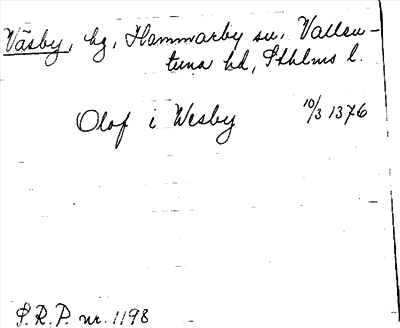 Väsby, hg, Hammarby sn, Vallen-
tuna hd, Sthlms l.
Olof i Wesby 10/3 1376
S.R.P. nr. 1198